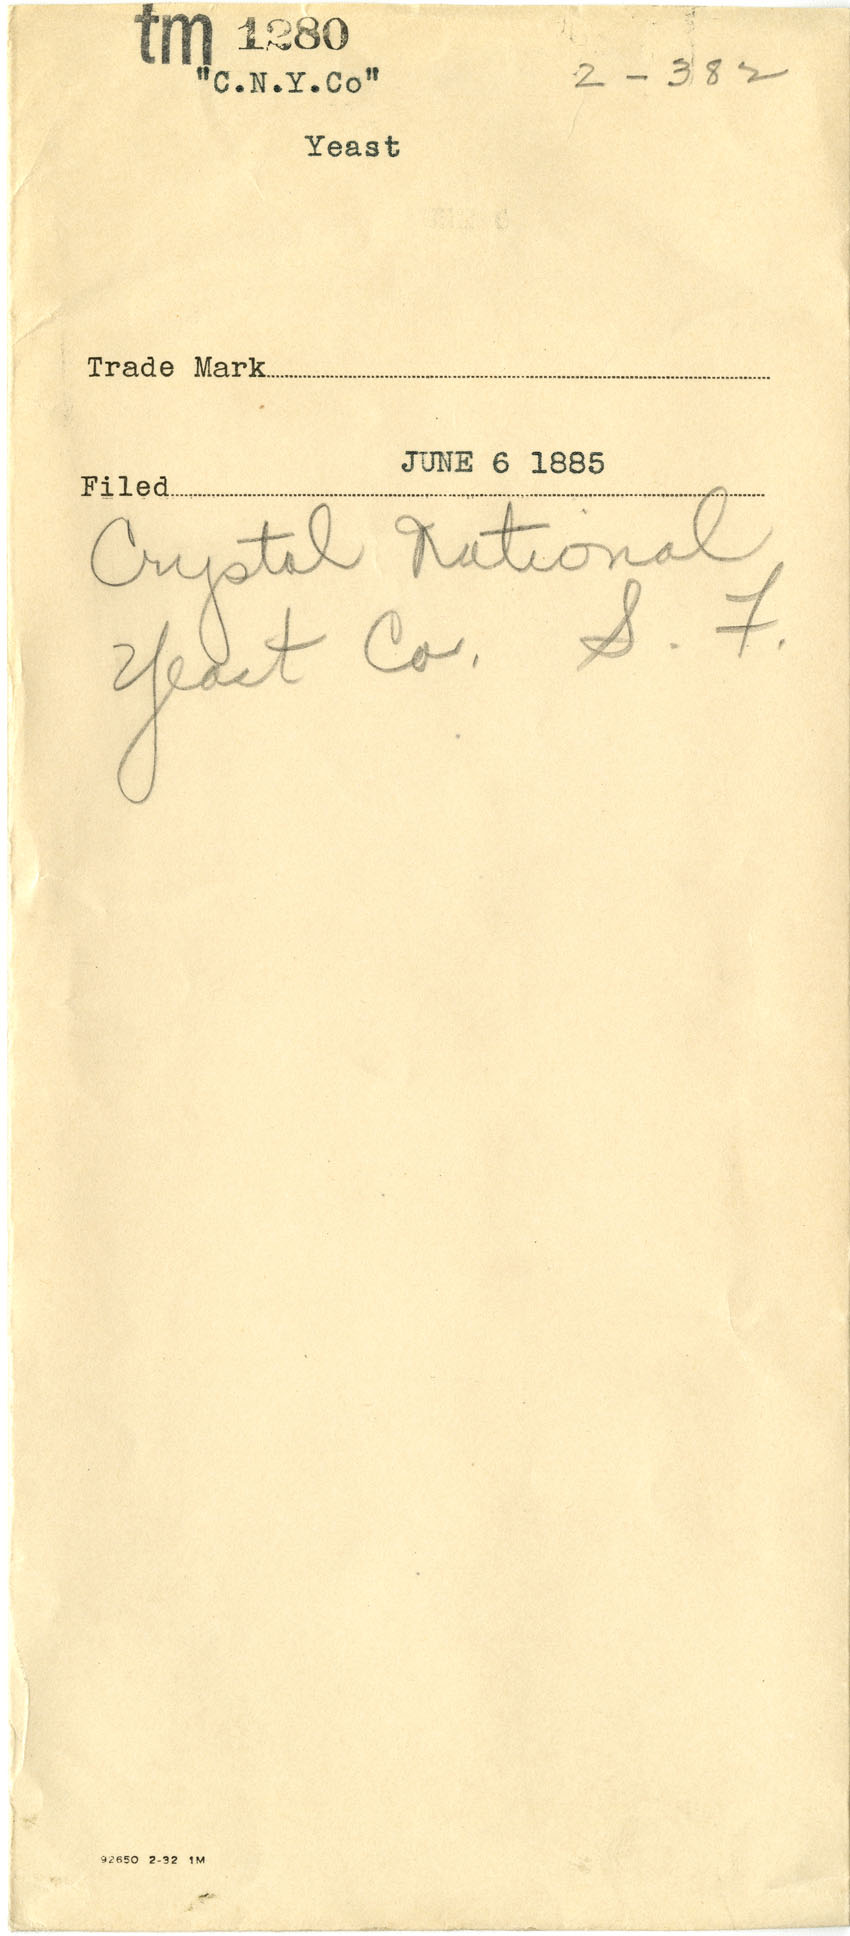 tm 1280
2-382
"C.N.Y.Co"
Yeast
Trade Mark
JUNE 6 1885
Filed
Crystal National
Yeast Co. S. F.
92650 2-32 1M